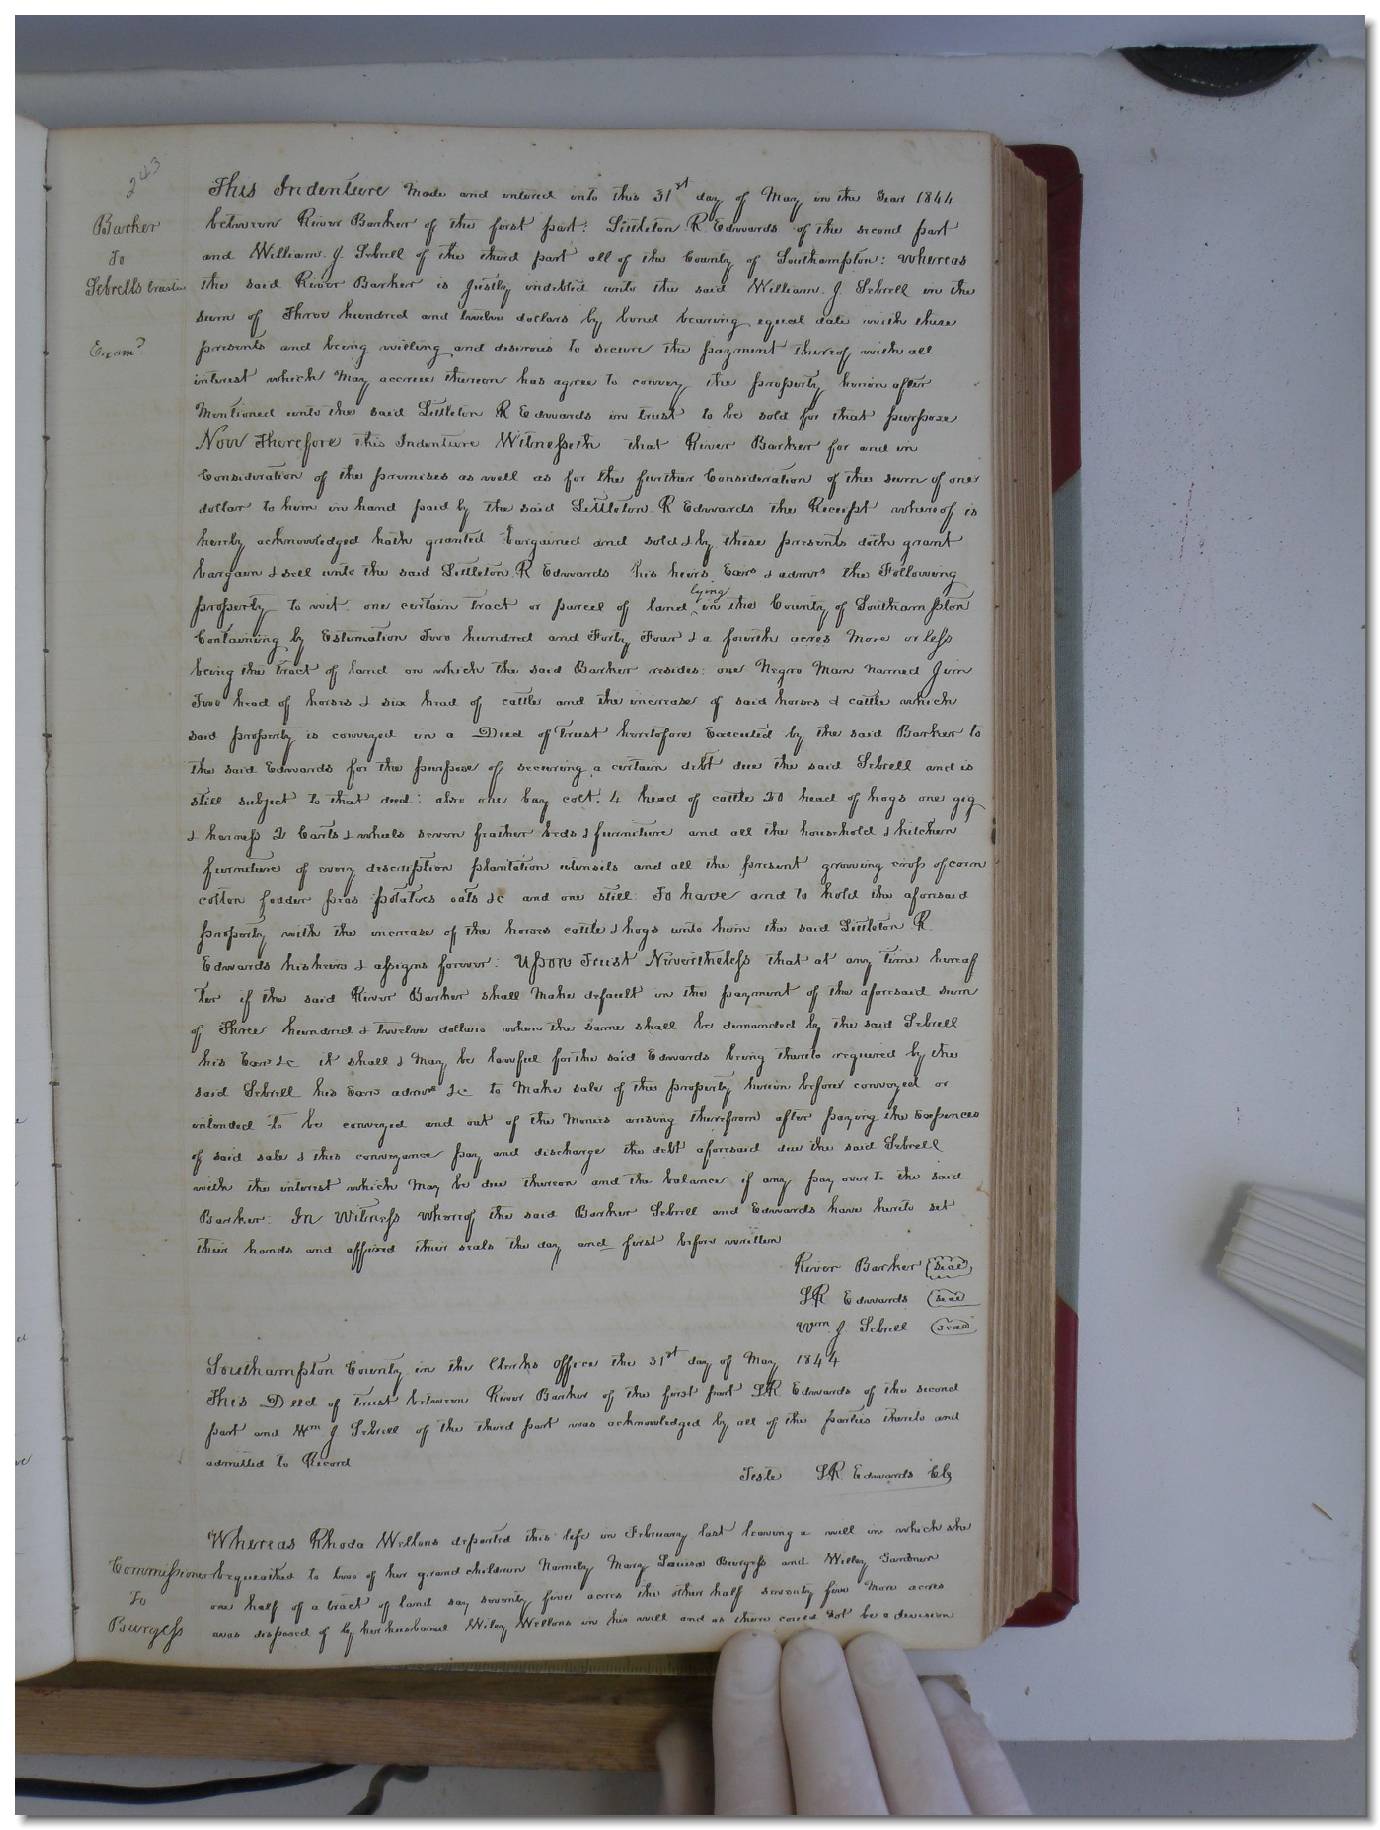 243
Barker
To
Sebrells
Exam.d
This Indenture Made and entered into this 31st day of May in the Year 1844
between River Barker of the first part: Littleton R Edwards of the second part
and William. J. Sebrell of the third part all of the County of Southampton: Whereas
the said River Barker is justly indebted unto the said William. J. Sebrell in the
sum of Three hundred and twelve dollars by bond bearing equal date with these
presents and being willing and desirous to secure the payment thereof with all
interest which May accrue thereon has agree to convey the property herein after
Mentioned unto the said Littleton R Edwards in trust to be sold for that purpose
Now Therefore this Indenture Witnesseth that River Barker for and in
Consideration of the premises as well as for the further Consideration of the sum of one
dollar to him in hand paid by the said Littleton R Edwards the Receipt whereof is
hereby acknowledged hath granted bargained and sold & by these presents doth grant
bargain & sell unto the said Littleton R Edwards his heirs Exors & admrs the Following
property to wit: one certain tract or parcel of land lying in the County of Southampton
Containing by Estimation Two hundred and Forty Four & a fourth acres More or less
being the tract of land on which the said Barker resides: one Negro Man named Jim
Two head of horses & six head of cattle and the increase of said horses & cattle which
said property is conveyed in a Deed of Trust heretofore Executed by the said Barker to
the said Edwards for the purpose of securing a certain debt due the said Sebrell and is
still subject to that deed: also one bay colt. 4 head of cattle 20 head of hogs one gig
& harness 2 Carts & wheels seven feather beds & furniture and all the household & kitchen
furniture of every description plantation utensils and all the present growing crop of corn
cotton fodder peas potatoes oats &c and one still: To have and to hold the aforesaid
property with the increase of the horses cattle & hogs unto him the said Littleton R.
Edwards his heirs & assigns forever: Upon Trust Nevertheless that at any time hereaf
ter if the said River Barker shall Make default in the payment of the aforesaid sum
of Three hundred & twelve dollars when the same shall be demanded by the said Sebrell
his Exors &c it shall & May be lawful for the said Edwards being thereto required by the
said Sebrell his Exors admrs &c to Make sale of the property herein before conveyed or
intended to be conveyed and out of the Monies arising therefrom after paying the Expences
of said sale & this conveyance pay and discharge the debt aforesaid due the said Sebrell
with the interest which May be due thereon and the balance if any pay over to the said
Barker: In Witness Whereof the said Barker Sebrell and Edwards have hereto set
their hands and affixed their seals the day and first before written
River Barker (seal)
LR Edwards (seal)
Wm. J. Sebrell (seal)
Southampton County in the Clerks office the 31st day of May 1844
This Deed of Trust between River Barker of the first part LR Edwards of the second
part and Wm J Sebrell of the third part was acknowledged by all of the parties thereto and
admitted to Record
Teste LR Edwards Clk
Commissioner
To
Burgess
Whereas Rhoda Wellons departed this life in February last leaving a will in which she
bequeathed to two of her grand children Namely Mary Louisa Burgess and Wiley Gardner
one half of a tract of land say seventy five acres the other half seventy five More acres
was disposed of by her husband Wiley Wellons in his will and as there could not be a division